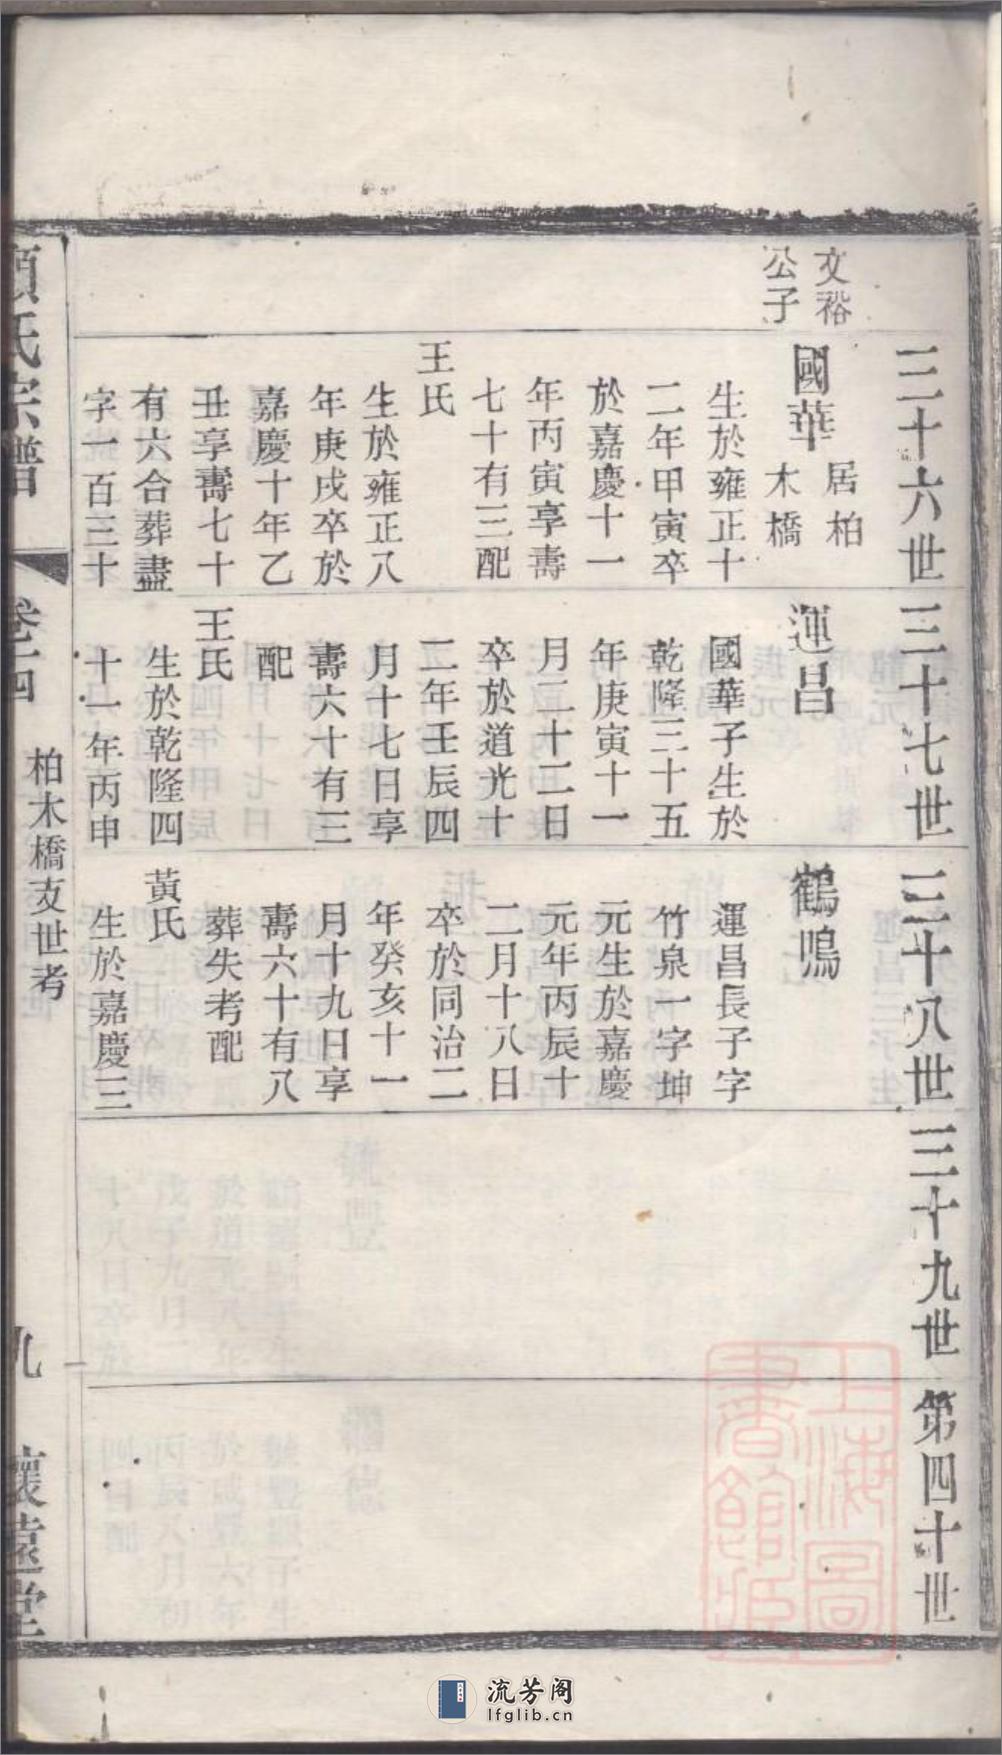 三十六世
三十七世
三十八世
三十九世
第四十世
文裕
公子
國華
居柏
木橋
生於雍正十
二年甲寅卒
於嘉慶十一
年丙寅享壽
七十有三配
王氏
生於雍正八
年庚戌卒於
嘉慶十年乙
丑享壽七十
有六合葬盡
字一百三十
運昌
國華子生於
乾隆三十五
年庚寅十一
月二十二日
卒於道光十
二年壬辰四
月十七日享
壽六十有三
配
王氏
生於乾隆四
十一年丙申
鶴鳴
運昌長子字
竹泉一字坤
元生於嘉慶
元年丙辰十
二月十八日
卒於同治二
年癸亥十一
月十九日享
壽六十有八
葬失考配
黃氏
生於嘉慶三
氏宗譜
卷十四
柏木橋支世考
九
懷遠堂
上海圖
書館藏
流芳阁
lfglib.cn